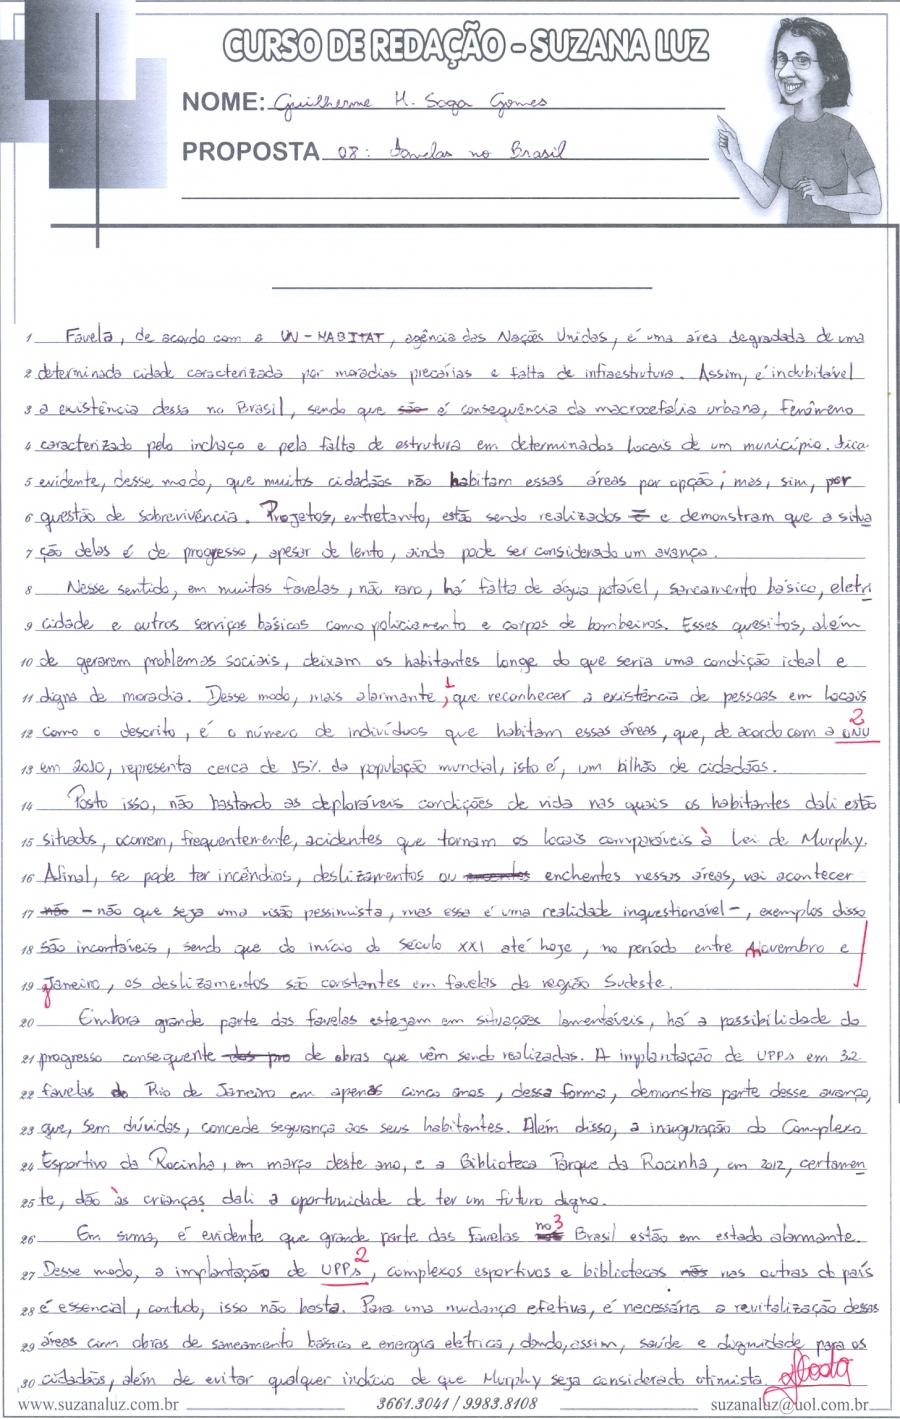 CURSO DE REDAÇÃO - SUZANA LUZ
NOME: Guilherme H. Soga Gomes
PROPOSTA 08: Favelas no Brasil
1 Favela, de acordo com a UN-HABITAT, agência das Nações Unidas, é uma área degradada de uma
2 determinada cidade caracterizada por moradias precárias e falta de infraestrutura. Assim, é indubitável
3 a existência dessa no Brasil, sendo que são é consequência da macrocefalia urbana, fenômeno
4 caracterizado pelo inchaço e pela falta de estrutura em determinados locais de um município. Fica
5 evidente, desse modo, que muitos cidadãos não habitam essas áreas por opção; mas, sim, por
6 questão de sobrevivência. Projetos, entretanto, estão sendo realizados e e demonstram que a situa
7 ção delas é de progresso, apesar de lento, ainda pode ser considerado um avanço.
8 Nesse sentido, em muitas favelas, não raro, há falta de água potável, saneamento básico, eletri
9 cidade e outros serviços básicos como policiamento e corpos de bombeiros. Esses quesitos, além
10 de gerarem problemas sociais, deixam os habitantes longe do que seria uma condição ideal e
1
11 digna de moradia. Desse modo, mais alarmante, que reconhecer a existência de pessoas em locais
2
12 como o descrito, é o número de indivíduos que habitam essas áreas, que, de acordo com a ONU
13 em 2010, representa cerca de 15% da população mundial, isto é, um bilhão de cidadãos.
14 Posto isso, não bastando as deploráveis condições de vida nas quais os habitantes dali estão
15 situados, ocorrem, frequentemente, acidentes que tornam os locais comparáveis à Lei de Murphy.
16 Afinal, se pode ter incêndios, deslizamentos ou enchentes nessas áreas, vai acontecer
17 não - não que seja uma visão pessimista, mas essa é uma realidade inquestionável -, exemplos disso
18 são incontáveis, sendo que do início do Século XXI até hoje, no período entre Novembro e
19 Janeiro, os deslizamentos são constantes em favelas da região Sudeste.
20 Embora grande parte das favelas estejam em situações lamentáveis, há a possibilidade do
21 progresso consequente das pro de obras que vêm sendo realizadas. A implantação de UPPs em 32
22 favelas do Rio de Janeiro em apenas cinco anos, dessa forma, demonstra parte desse avanço,
23 que, sem dúvidas, concede segurança aos seus habitantes. Além disso, a inauguração do Complexo
24 Esportivo da Rocinha, em março deste ano, e a Biblioteca Parque da Rocinha, em 2012, certamen
25 te, dão às crianças dali a oportunidade de ter um futuro digno.
3
26 Em suma, é evidente que grande parte das Favelas no Brasil estão em estado alarmante.
2
27 Desse modo, a implantação de UPPs, complexos esportivos e bibliotecas nas outras do país
28 é essencial, contudo, isso não basta. Para uma mudança efetiva, é necessária a revitalização dessas
29 áreas com obras de saneamento básico e energia elétrica, dando, assim, saúde e dignidade para os
30 cidadãos, além de evitar qualquer indício de que Murphy seja considerado otimista.
www.suzanaluz.com.br 3661.3041 / 9983.8108 suzanaluz@uol.com.br